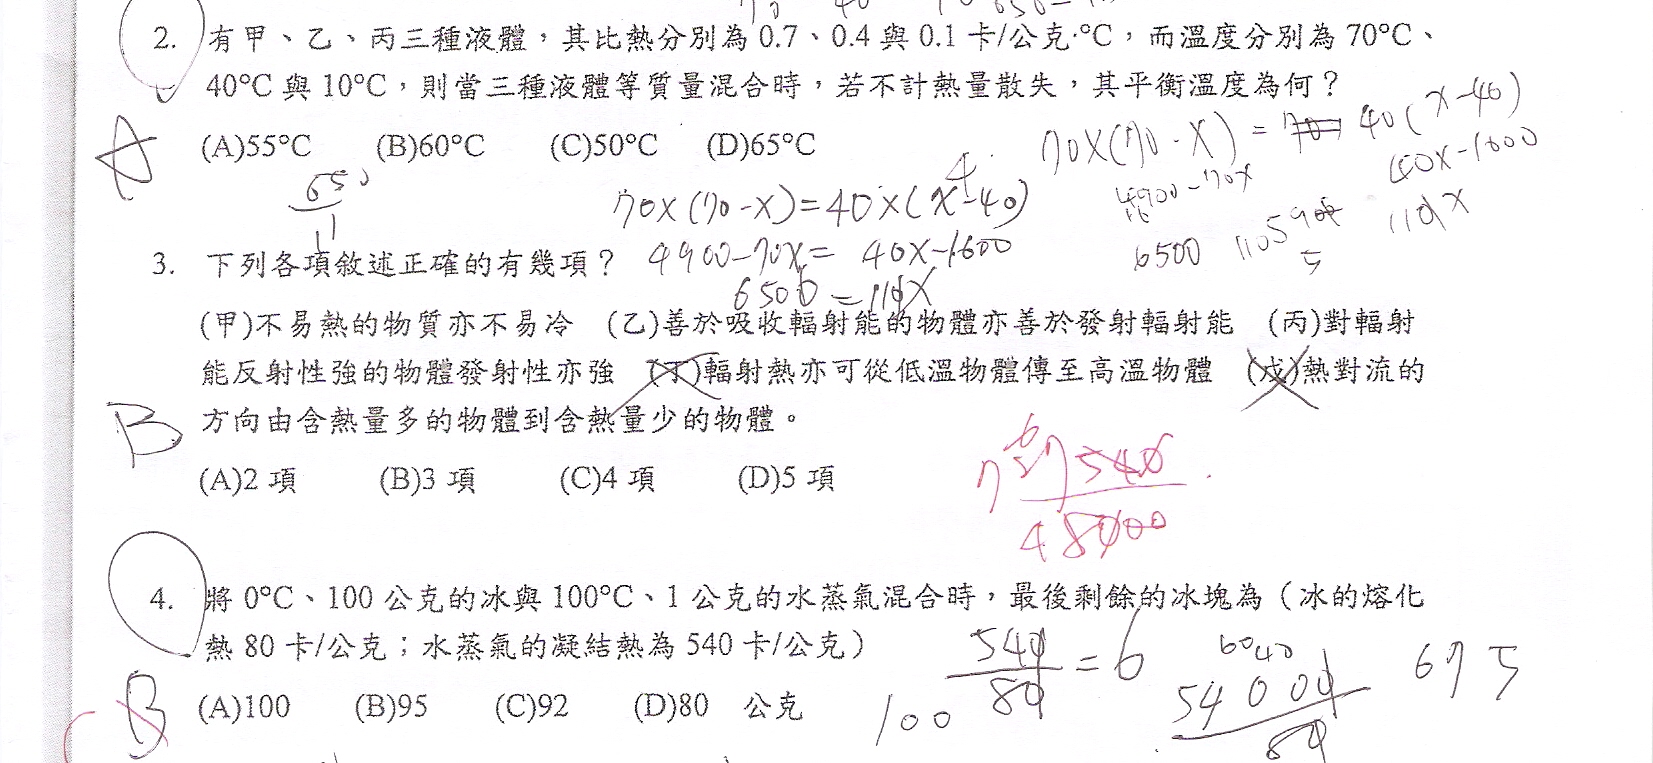 2. 有甲、乙、丙三種液體，其比熱分別為 0.7、0.4 與 0.1 卡/公克·°C，而溫度分別為 70°C、
40°C 與 10°C，則當三種液體等質量混合時，若不計熱量散失，其平衡溫度為何？
A (A)55°C (B)60°C (C)50°C (D)65°C
70X(70-X)= 40(x-40)
4900-70x 40x-1600
650/11
70x(70-x)=40x(x-40)
6500 110x
3. 下列各項敘述正確的有幾項？ 4900-70x= 40x-1600
6500=110x
(甲)不易熱的物質亦不易冷 (乙)善於吸收輻射能的物體亦善於發射輻射能 (丙)對輻射
能反射性強的物體發射性亦強 (丁)輻射熱亦可從低溫物體傳至高溫物體 (戊)熱對流的
B 方向由含熱量多的物體到含熱量少的物體。
(A)2 項 (B)3 項 (C)4 項 (D)5 項
4. 將 0°C、100 公克的冰與 100°C、1 公克的水蒸氣混合時，最後剩餘的冰塊為（冰的熔化
熱 80 卡/公克；水蒸氣的凝結熱為 540 卡/公克）
540/80=6
6040
54000/80
675
B (A)100 (B)95 (C)92 (D)80 公克
100